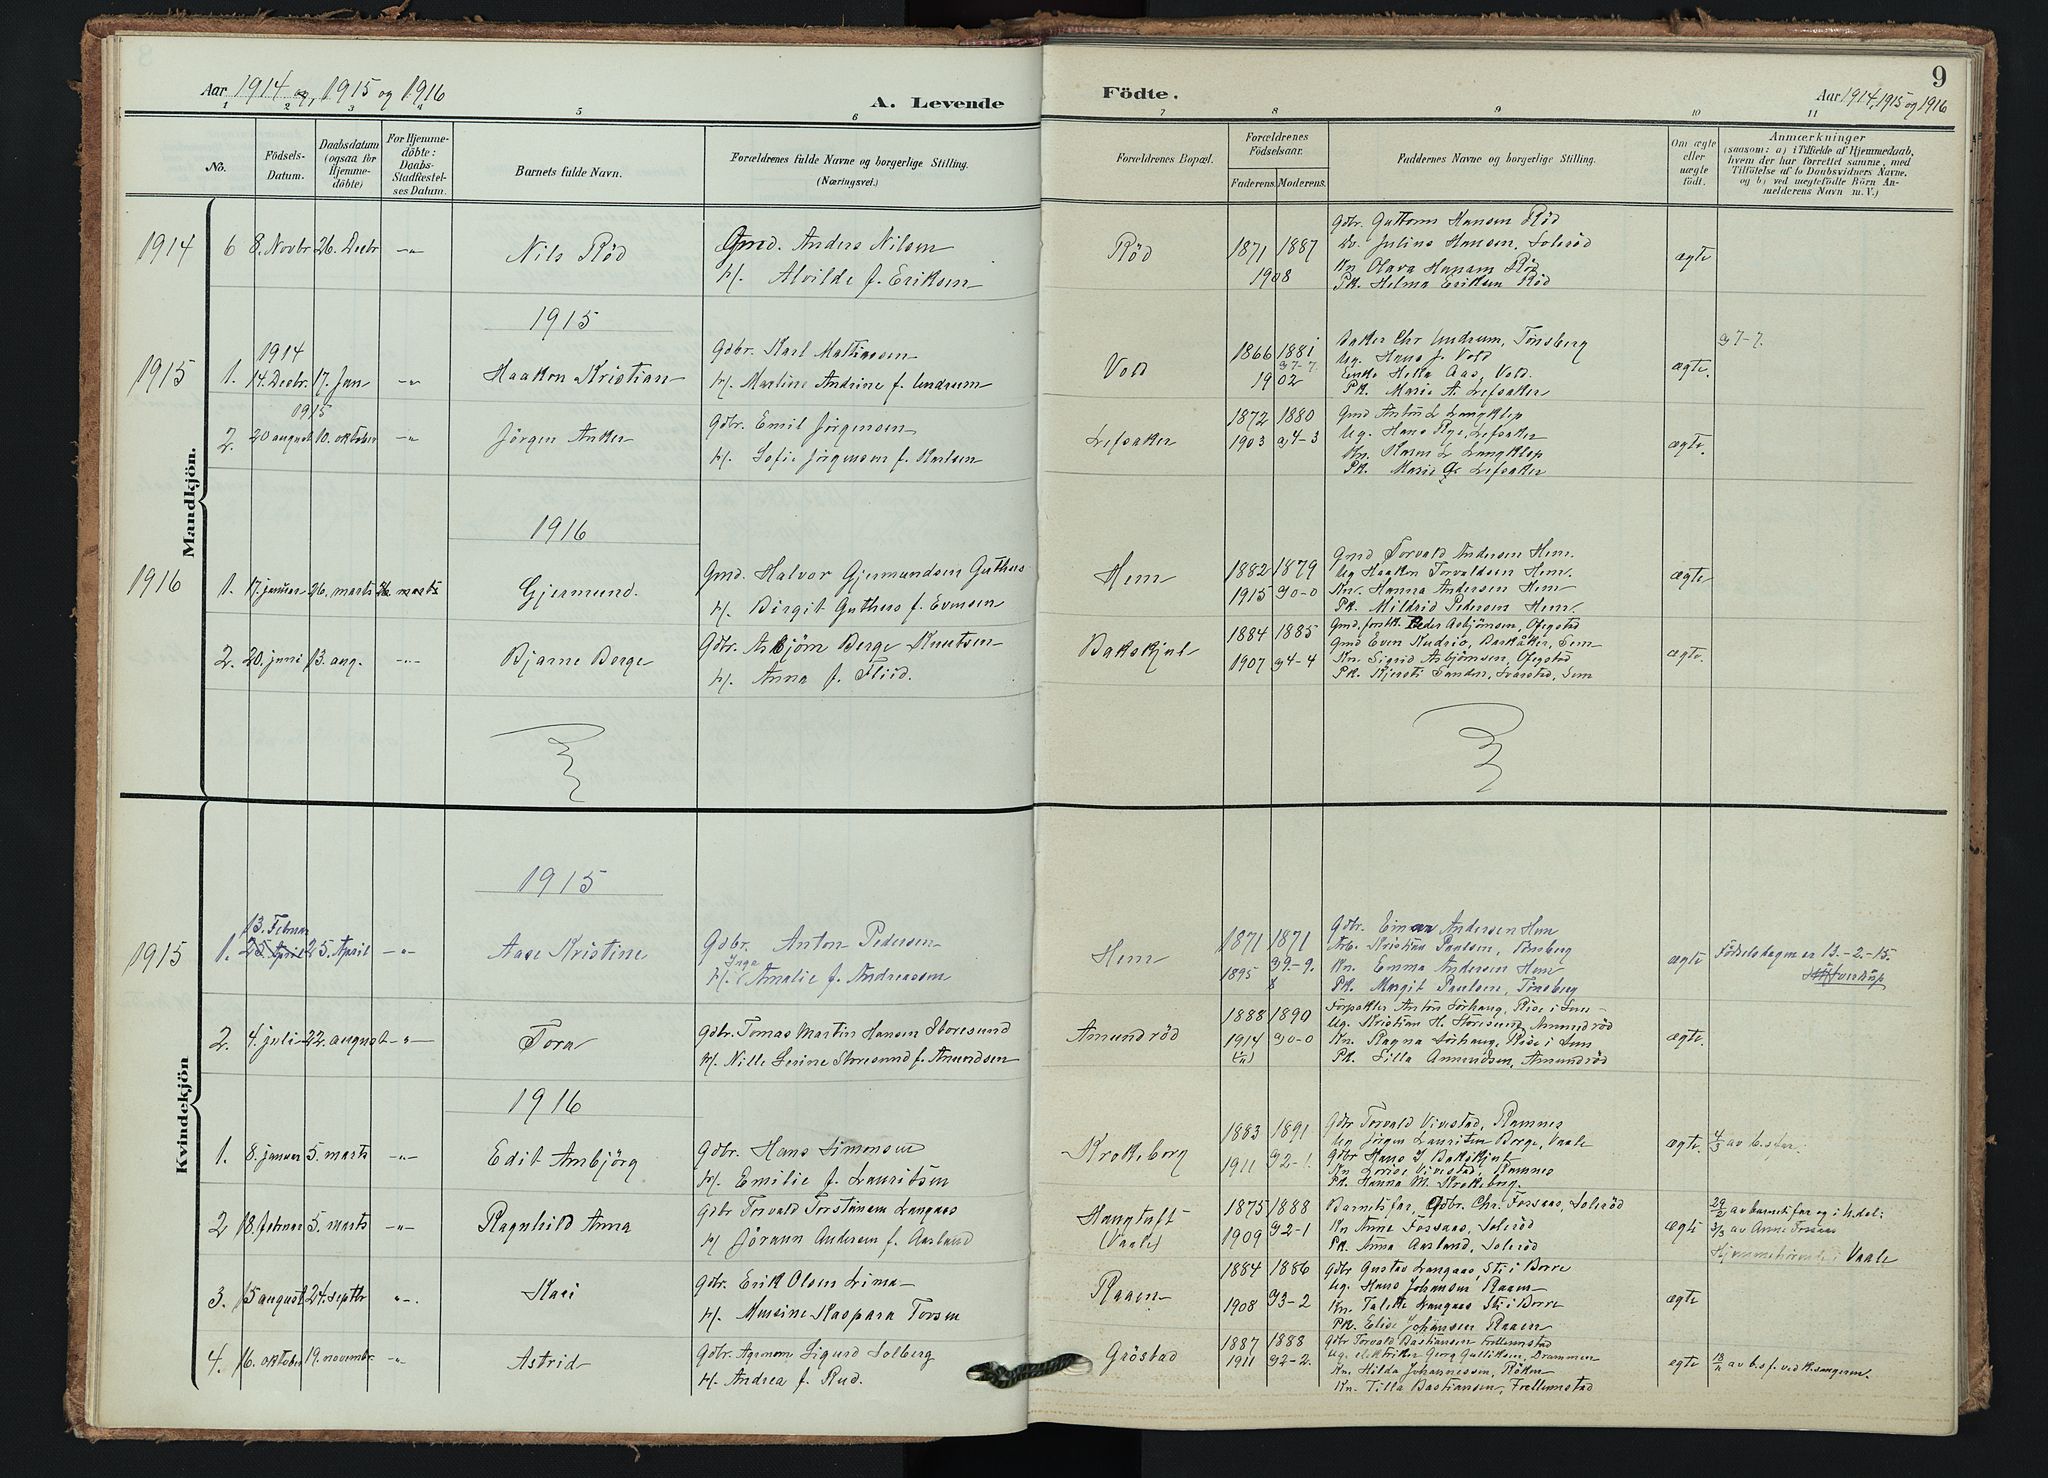 Aar 1914 og, 1915 og 1916
A. Levende
Födte.
9
Aar 1914, 1915 og 1916
1 2 3 4 5 6 7 8 9 10 11
No.
Födsels-
Datum.
Daabsdatum
(ogsaa for
Hjemme-
döbte)
For Hjemme-
döbte:
Daabs-
Stadfæstel-
ses Datum.
Barnets fulde Navn.
Forældrenes fulde Navne og borgerlige Stilling.
(Næringsvei.)
Forældrenes Bopæl.
Forældrenes
Födselsaar.
Faderens. Moderens.
Faddernes Navne og borgerlige Stilling.
Om ægte
eller
uægte
födt.
Anmærkninger
(saasom: a) i Tilfælde af Hjemmedaab,
hvem der har forrettet samme, med
Tilföielse af to Daabsvidners Navne,
og b) ved uægtefödte Börn An-
melderens Navn m. V.)
Mandkjön.
1914
6 8. Novbr 26. Decbr -"- Nils Röd
Gmd. Anders Nilsen
H. Alvilde f. Eriksen
Röd
1871 1887
1908
Gdbr. Guttorm Hansen Röd
Dr. Julius Hansen, Solerød
Kn Olava Hansen Röd
Pk. Helma Eriksen Röd
ægte
1915
1915
1914
1. 14. Decbr. 17. Jan -"- Haakon Kristian
Gdbr. Karl Mathiesen
H. Martine Andrine f. Undrum
Vold
1866 1881
97-7.
1902
Chr Undrum, Tønsberg
Ug. Hans J. Vold
Enke Helka Aas, Vold.
Pk. Marie A. Lefsaker
ægte.
97-7.
1915
2. 20 august 10. oktober -"- Jörgen Anker
Gdbr. Emil Jörgensen
H. Sofie Jörgensen f. Karlsen
Lefsaker
1872 1880
1903 94-3
Gmd Anton L Langklep
Ug. Hans Rye, Lefsaker
Kn. Karen L Langklep
Pk. Marie G. Lefsaker
ægte.
1916
1916
1. 17. januar 26. marts 26. marts Gjermund.
Gmd. Halvor Gjermundsen Guthus
H. Birgit Guthus f. Evensen
Hem
1882 1879
1915 90-0
Gmd Torvald Andersen Hem.
Ug Haakon Torvaldsen Hem.
Kn. Hanna Andersen Hem
Pk. Mildrid Pedersen Hem.
ægte
2. 20. juni 13. aug. -"- Bjarne Berge
Gdbr. Asbjörn Berge Knutsen
H. Anna f. Fliid.
Bakskjul
1884 1885
1907 94-4
Gmd, forstk. Peder Asbjörnsen, Ofegstad
Gmd Even Kudrio, Barkåker, Sem
Kn. Sigrid Asbjörnsen, Ofegstad
Pk. Kjersti Sanden, Svarstad, Sem
ægte.
Kvindekjön
1915
1915
13. Februar
1. 25. April 25. April -"- Aase Kristine
Gdbr. Anton Pedersen
Inga
H. Amalie f. Andreassen
Hem
1871 1871
1895 99-9.
8
Gdbr. Einar Andersen Hem
Arb. Kristian Paulsen, Tønsberg
Kn. Emma Andersen Hem
Pk. Margit Paulsen, Tønsberg
ægte
Fødselsdagen er 13.-2.-15.
2. 4. juli 22. august -"- Tora
Gdbr. Tomas Martin Hansen Storesund
H. Nille Serine Storesund f. Amundsen
Amundröd
1888 1890
1914 90-0
Forpakter Anton Sørhaug, Rise i Sem
Ug. Kristian H. Storesund, Amundröd
Kn. Ragna Sørhaug, Rise i Sem
Pk. Silla Amundsen, Amundröd
ægte.
1916
1. 8. januar 5. marts -"- Edit Ambjörg
Gdbr. Hans Simonsen
H. Emilie f. Lauritsen
Krokeborg
1883 1891
1911 92-1.
Gdbr Torvald Vivestad, Ramnes
Ug Jörgen Lauritsen Borge, Vaale
Gdbr Hans I Bakskjul
Kn Lovise Vivestad, Ramnes
Pk. Hanna M. Krokeborg.
ægte.
4/3 av b.s far.
2 18. februar 5. marts -"- Ragnhild Anna
Gdbr Torvald Torstensen Langaas
H Jörann Andersen f. Aasland
Haugtuft
(Vaale)
1875 1888
1909 92-1
Barnets far, Gdbr. Chr. Fossaas, Soleröd
Kn Anne Fossaas, Soleröd
Pk. Anna Aasland, Soleröd
ægte
29/2 av barnets far og i h. del:
3/3 av Anne Fossaas
Hjemmehørende i Vaale
3. 15 august 24. septbr -"-. Kari
Gdbr. Erik Olsen Lima
H. Mensine Kaspara Torsen
Raaen
1884 1886
1908 93-2
Gdbr Gustav Langaas, Sti i Borre
Ug. Hans Johansen Raaen
Kn. Talette Langaas Sti i Borre
Pk. Elise Johansen Raaen
ægte
4. 16. oktober 19. novembr. -"- Astrid
Gdbr. Agronom Sigurd Solberg
H. Andrea f. Rud.
Gröstad
1887 1888
1911 92-2.
Gdbr Torvald Bastiansen Frellumstad
Ug. elektriker Georg Gulliksen, Drammen
Kn. Hilda Johannessen, Röken
Kn. Tilla Bastiansen, Frellumstad
ægte
av b.s f. ved k.sangeren.